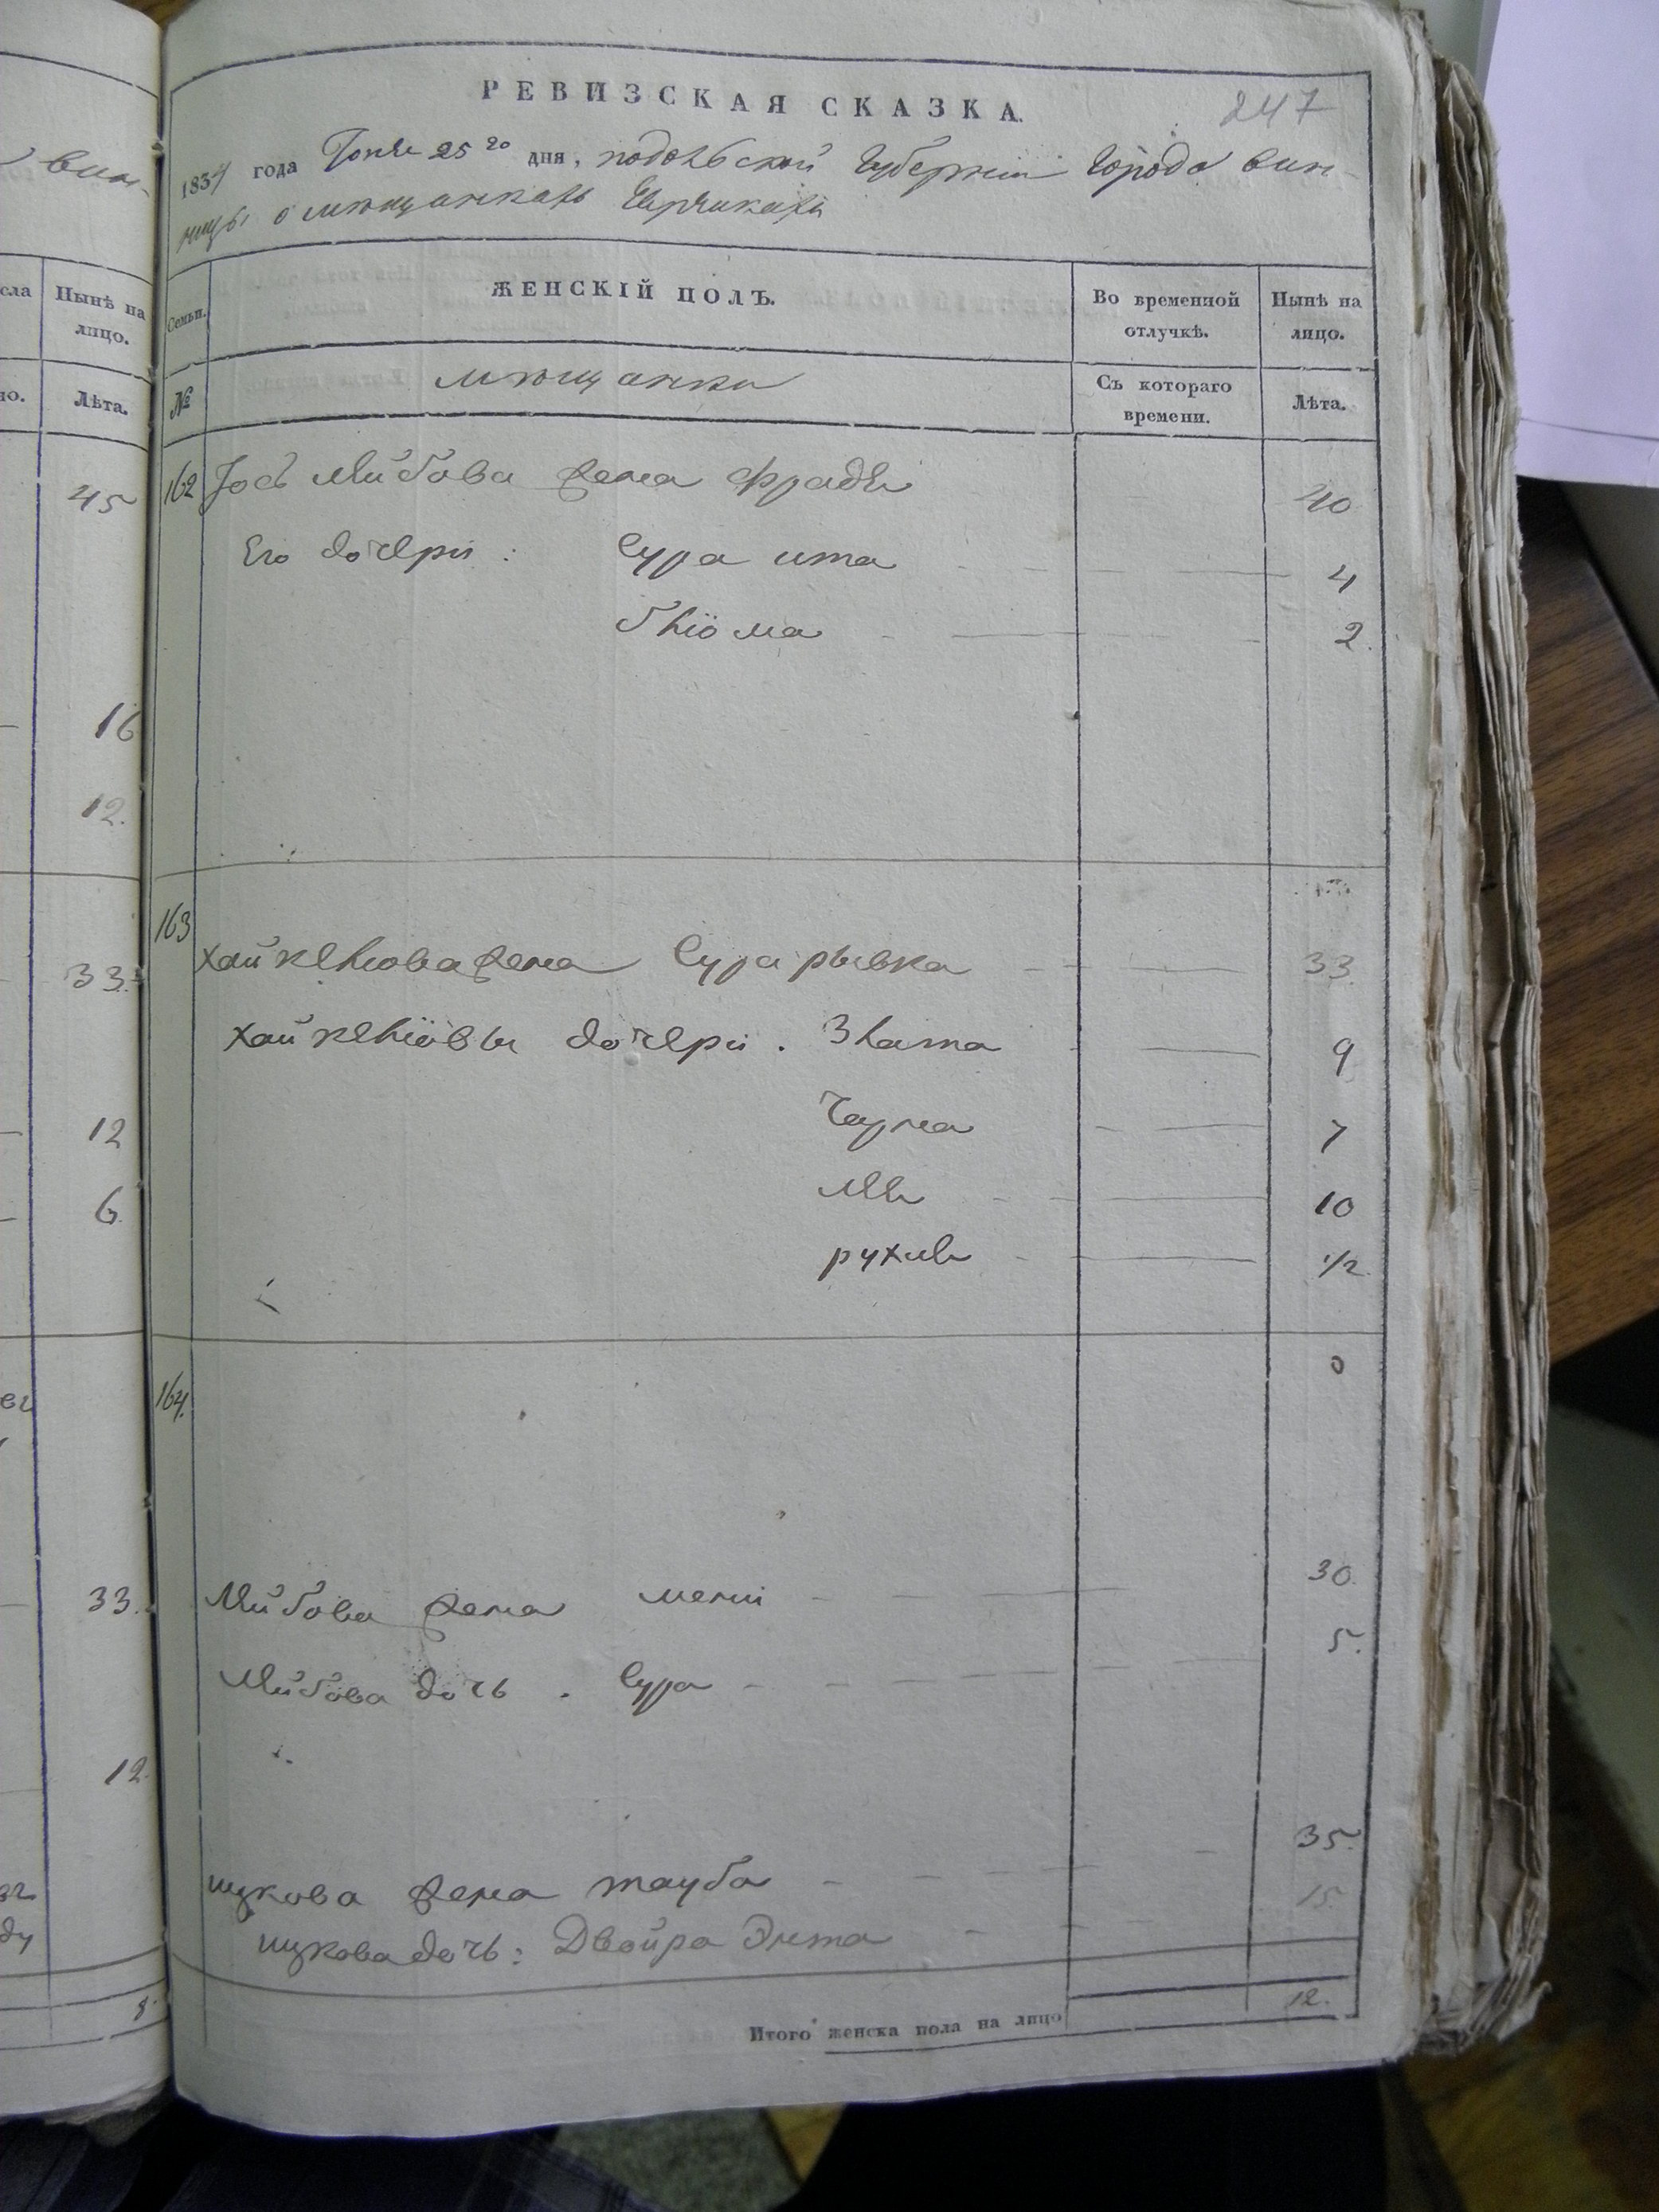 РЕВИЗСКАЯ СКАЗКА.
247
1834 года Юнѣ 25го дня, подольской Губернiи Города вин-
ницы о мѣщанкахъ Еврейкахъ
Семьи.
ЖЕНСКІЙ ПОЛЪ.
Во временной отлучкѣ.
Нынѣ на лицо.
№
мѣщанки
Съ котораго времени.
Лѣта.
162 Іосъ Лейбова жена Фрадѣ 40
Его дочери: Сура ита 4
блюма 2.
163
хайкелюва жена Сура рывка 33.
хайкелiовы дочери. Злата 9
Чарна 7
Лѣя 10
рухля 1/2.
0
164.
Лейбова жена мени 30.
Лейбова дочь. Сура 5.
ицкова жена тауба 35.
ицкова дочь: Двойра Энта 15.
Итого женска пола на лицо 12.
вин-
сла
Нынѣ на лицо.
но.
Лѣта.
45
16
12.
33.
12
6.
33.
12.
8.